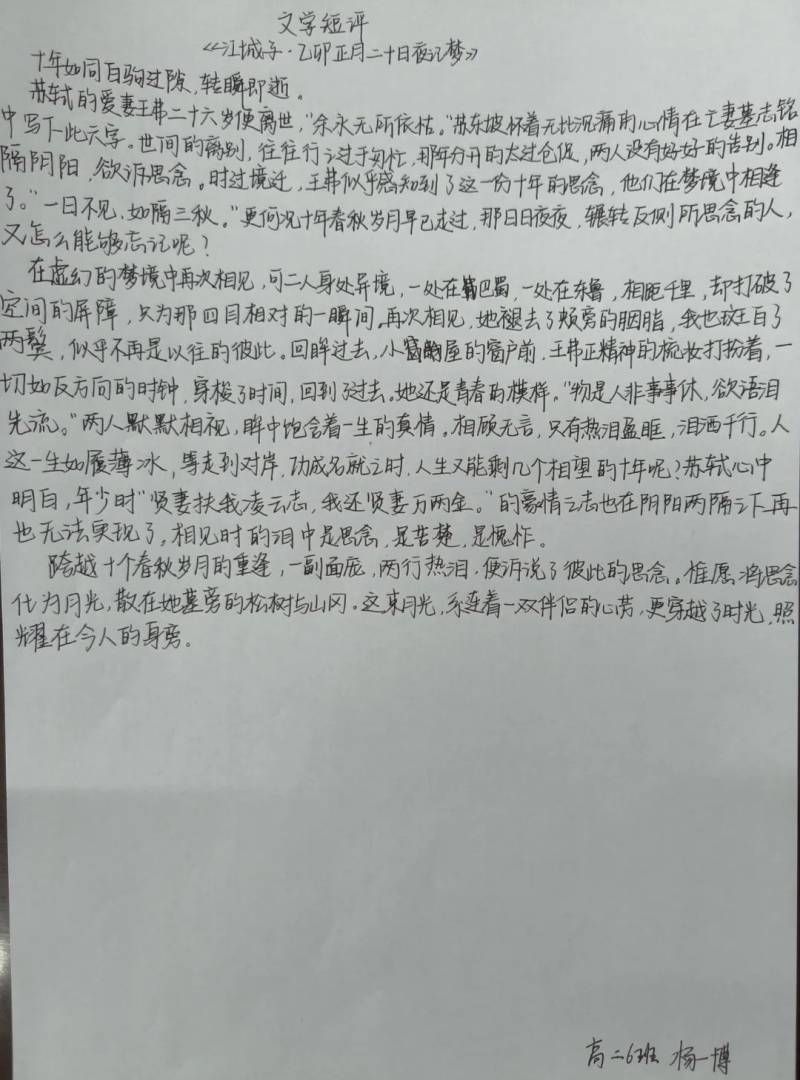 文学短评
《江城子·乙卯正月二十日夜记梦》
十年如同白驹过隙，转瞬即逝。
苏轼的爱妻王弗二十六岁便离世，"余永无所依怙。"苏东坡怀着无比沉痛的心情在亡妻墓志铭
中写下此六字。世间的离别，往往行过于匆忙，那年分开的太过仓促，两人没有好好的告别。相
隔阴阳，欲诉思念。时过境迁，王弗似乎感知到了这一份十年的思念，他们在梦境中相逢
了。"一日不见，如隔三秋。"更何况十年春秋岁月早已走过，那日日夜夜，辗转反侧所思念的人，
又怎么能够忘记呢？
在虚幻的梦境中再次相见，可二人身处异境，一处在巴蜀，一处在东鲁，相距千里，却打破了
空间的屏障，只为那四目相对的一瞬间。再次相见，她褪去了颊旁的胭脂，我也斑白了
两鬓，似乎不再是以往的彼此。回眸过去，小屋的窗户前，王弗正精神的梳妆打扮着，一
切如反方向的时钟，穿梭了时间，回到了过去。她还是青春的模样。"物是人非事事休，欲语泪
先流。"两人默默相视，眸中饱含着一生的真情。相顾无言，只有热泪盈眶，泪洒千行。人
这一生如履薄冰，等走到对岸，功成名就之时，人生又能剩几个相望的十年呢？苏轼心中
明白，年少时"贤妻扶我凌云志，我还贤妻万两金。"的豪情之志也在阴阳两隔之下再
也无法实现了，相见时的泪中是思念，是苦楚，是愧怍。
跨越十个春秋岁月的重逢，一副面庞，两行热泪，便诉说了彼此的思念。惟愿将思念
化为月光，散在她墓旁的松树与山冈。这束月光，系连着一双伴侣的心劳，更穿越了时光，照
耀在今人的身旁。
高二6班 杨一博